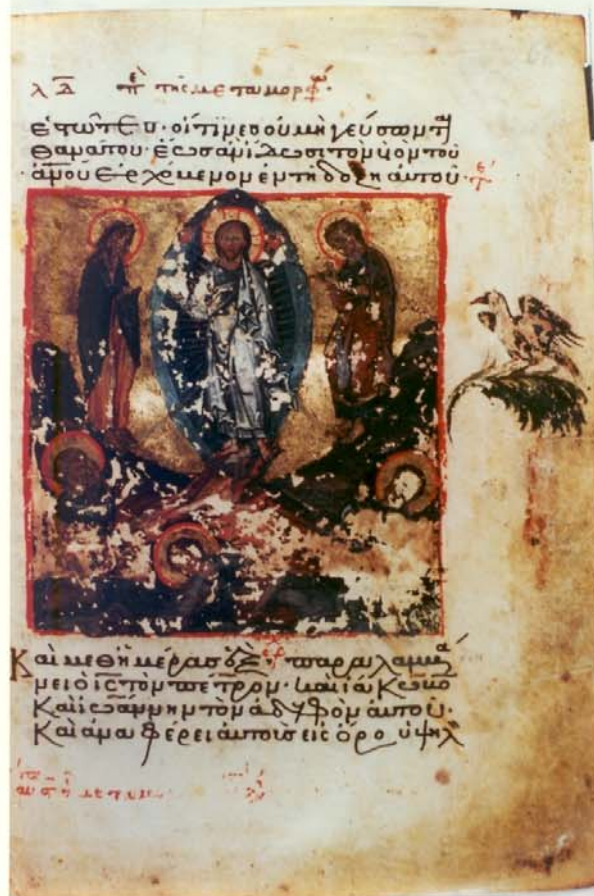 τῆς μεταμορφ
οἵτινες οὐ μὴ γεύσωντ
θανάτου· ἕως ἂν ἴδωσι τὸν υἱὸν τοῦ
ἀνου ἐρχόμενον ἐν τῇ δόξῃ αὐτοῦ·
Καὶ μεθ ἡμέρας ἕξ· παραλαμβά
νει ὁ ις τὸν πέτρον· καὶ ἰάκωβο
Καὶ ἰωάννην τὸν ἀδελφὸν αὐτοῦ·
Καὶ ἀναφέρει αὐτοὺς εἰς ὄρο ὑψηλ